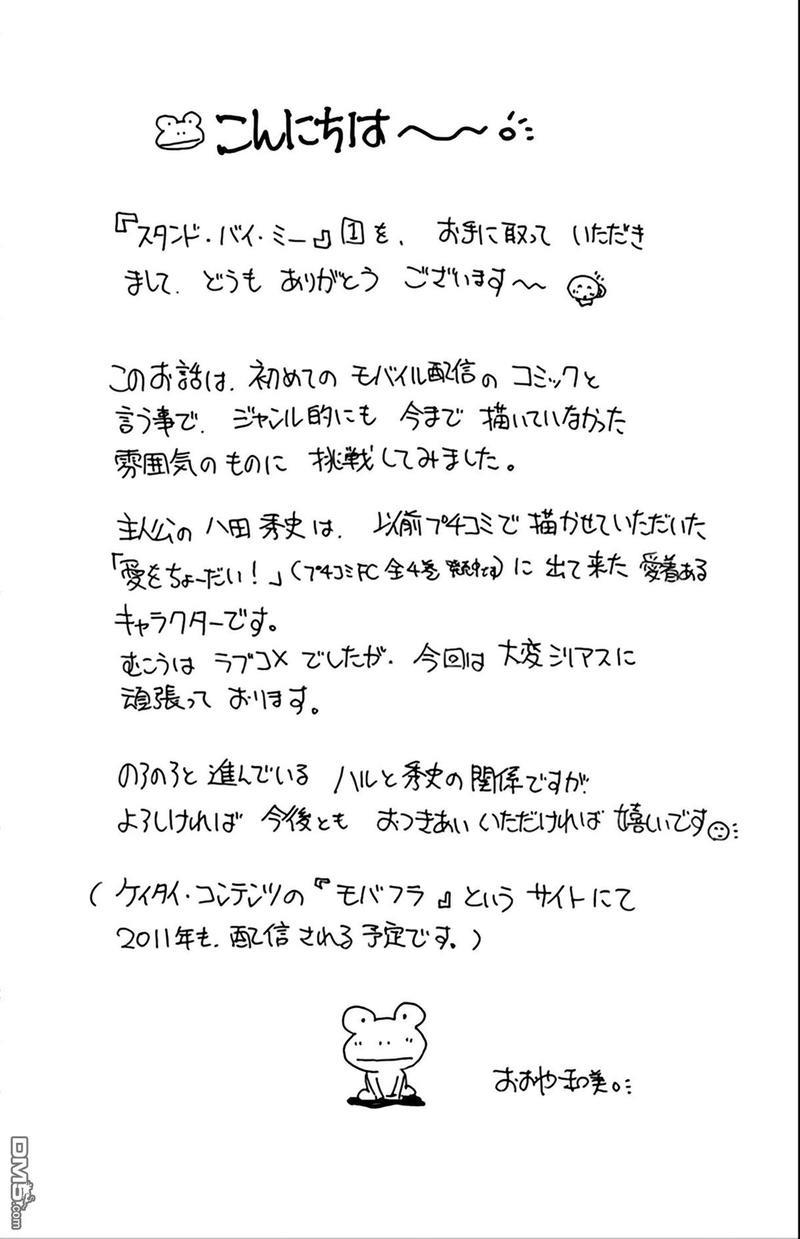 こんにちは〜〜
『スタンド・バイ・ミー』1を、お手に取っていただき
まして、どうもありがとうございます〜
このお話は、初めてのモバイル配信のコミックと
言う事で、ジャンル的にも今まで描いていなかった
雰囲気のものに挑戦してみました。
主人公の八田秀史は、以前プチコミで描かせていただいた
「愛をちょーだい！」(プチコミFC全4巻発売中です)に出て来た愛着ある
キャラクターです。
むこうはラブコメでしたが、今回は大変シリアスに
頑張っております。
のろのろと進んでいるハルと秀史の関係ですが
よろしければ今後ともおつきあいいただければ嬉しいです
(ケイタイ・コンテンツの『モバフラ』というサイトにて
2011年も、配信される予定です。)
おおや和美。
DM5.com